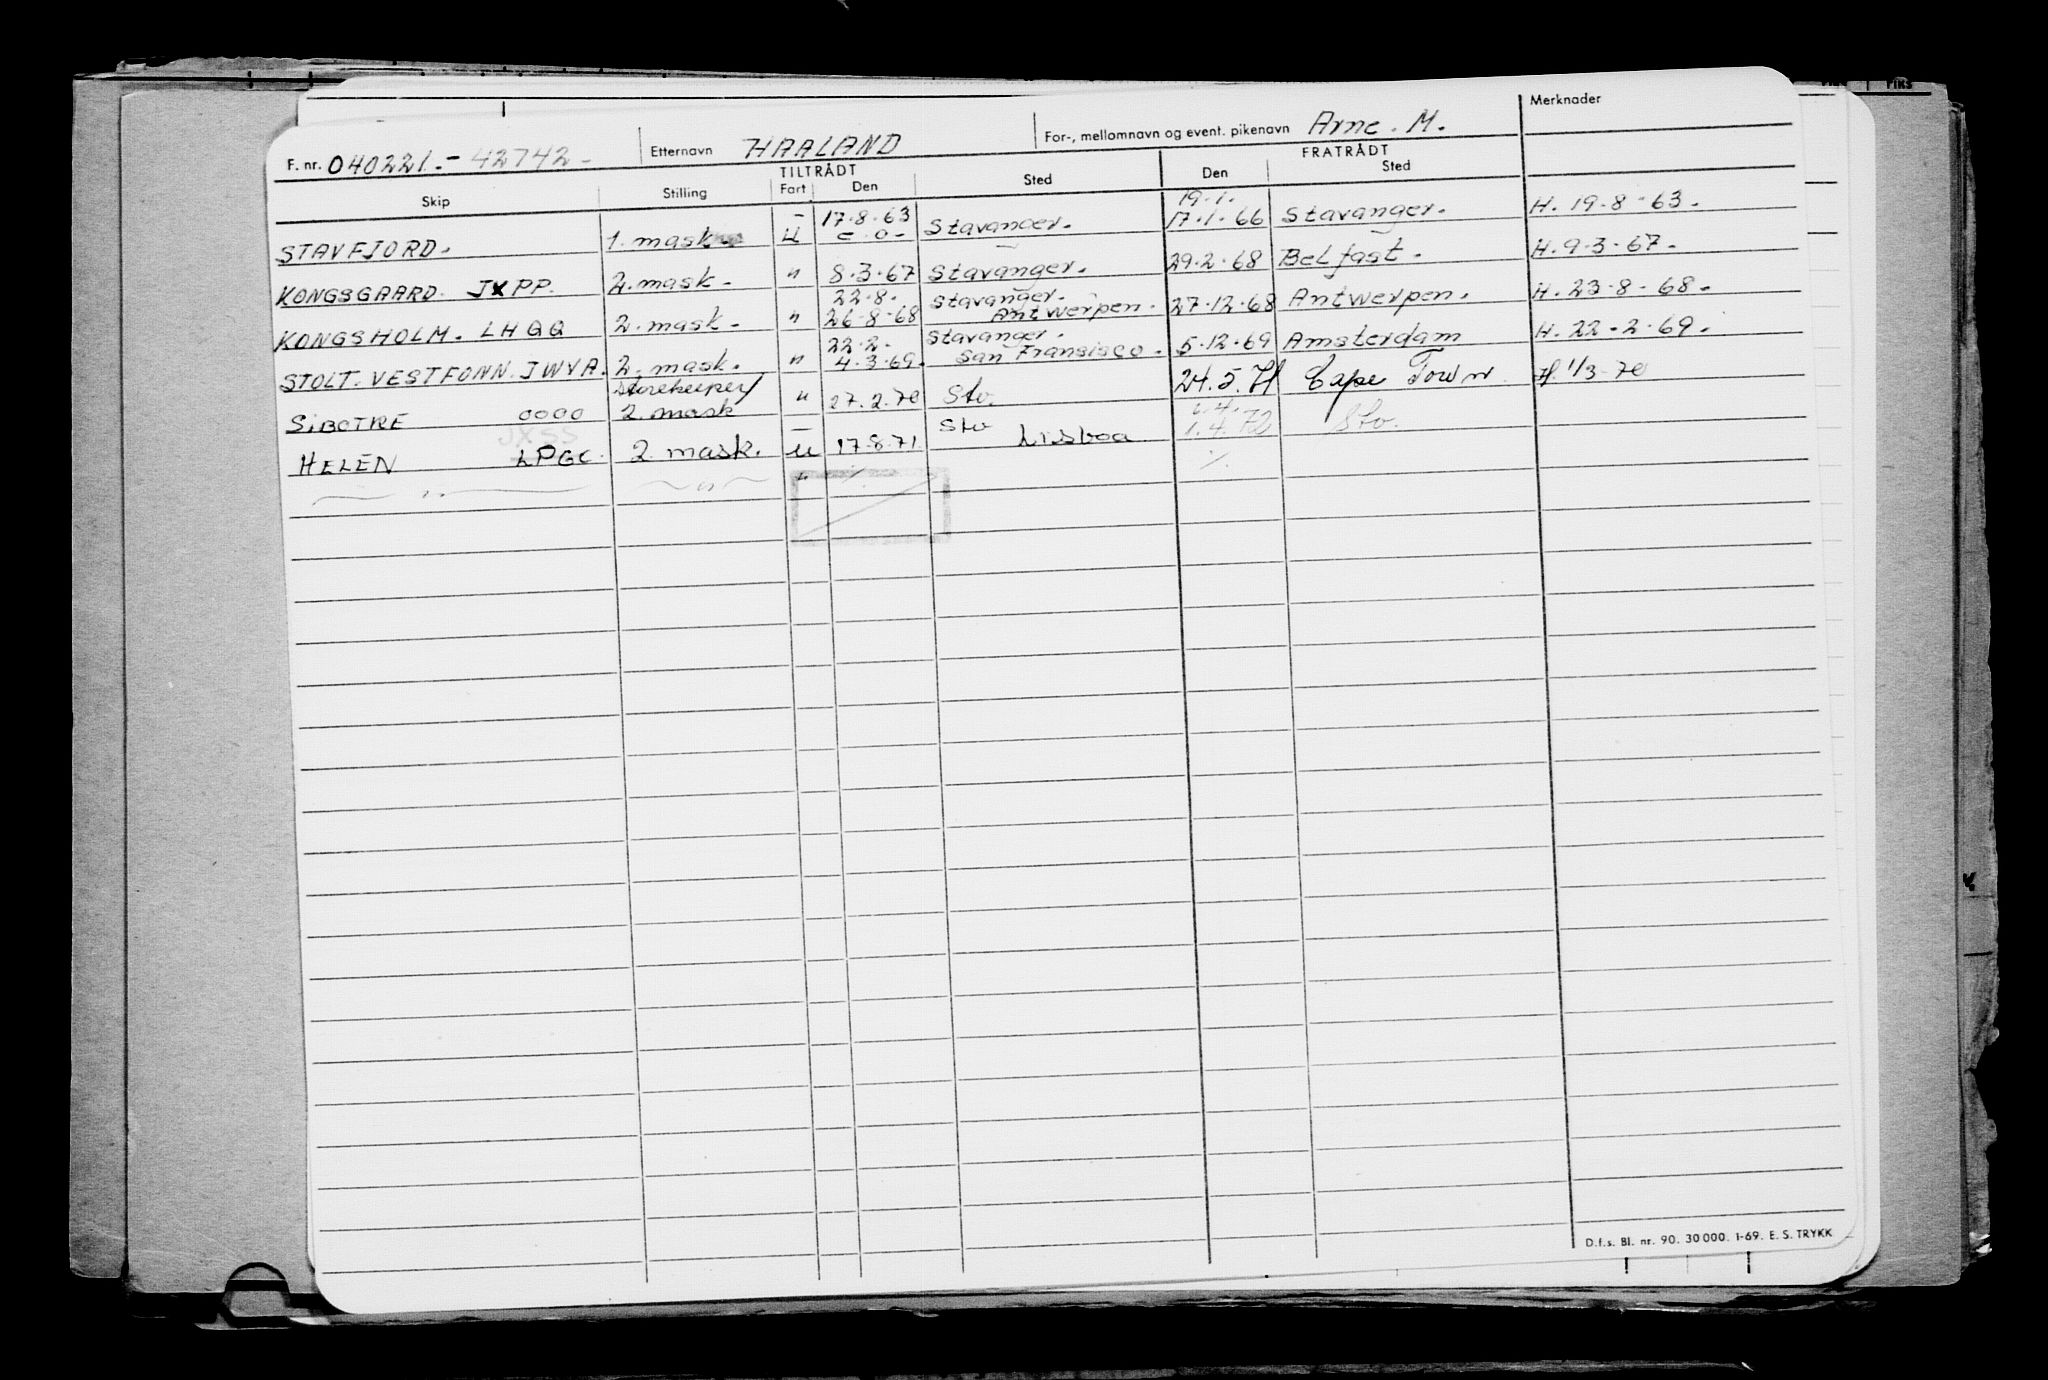 Merknader
F. nr. 040221.- 42742- Etternavn HAALAND For-, mellomnavn og event. pikenavn Arne. M.
TILTRÅDT FRATRÅDT
Skip Stilling Fart Den Sted Den Sted
- 17.8.63 19.1.
STAVFJORD. 1. mask. U Stavanger. 17.1.66 Stavanger. H. 19-8-63.
KONGSGAARD. JXPP. 2. mask. " 8.3.67 Stavanger. 29.2.68 Belfast. H. 9-3-67.
22.8. Stavanger.
KONGSHOLM. LHQQ 2. mask. " 26.8.68 Antwerpen. 27.12.68 Antwerpen. H. 23-8-68.
22.2. Stavanger.
STOLT. VESTFONN. JWVA. 2. mask. " 4.3.69. San Fransisco. 5.12.69 Amsterdam H. 22-2-69.
Storekeeper/
SIBOTRE 0000 2. mask " 27.2.70 Stv. 24.5.71 Cape Town H. 1/3-70
JXSS - Stv 1.4.
HELEN LPGC. 2. mask. U 17.8.71. Lisboa 1.4.72 Stv.
" " " ./. ./.
D.f.s. Bl. nr. 90. 30 000. 1-69. E. S. TRYKK